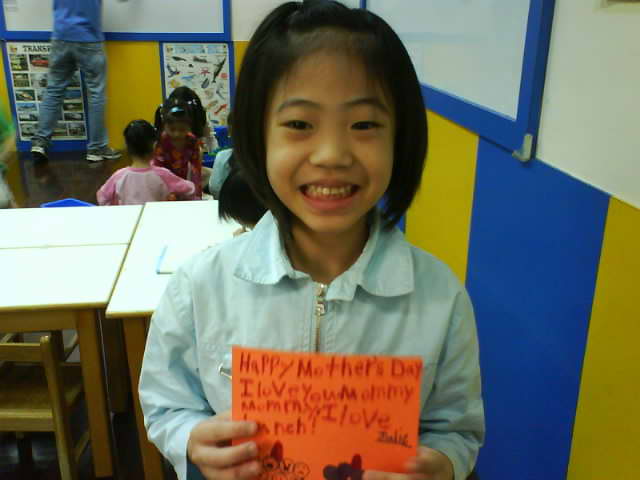 TRANSP
Happy Mother's Day
I love You Mommy
Mommy, I love
Julie